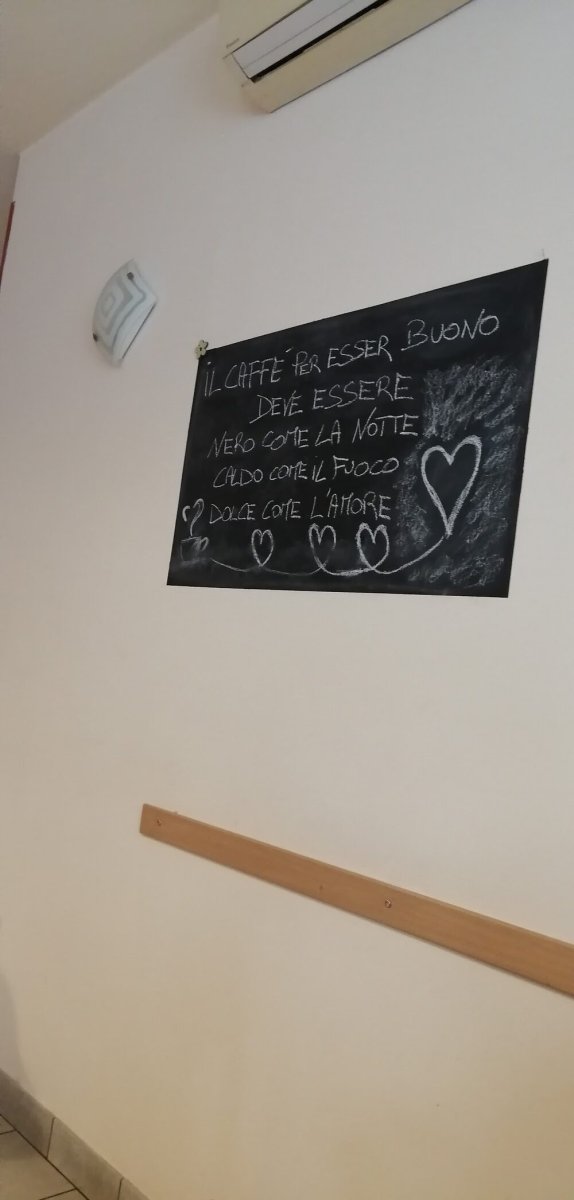 iL CAFFE' PER ESSER BUONO
DEVE ESSERE
NERO COME LA NOTTE
CALDO COME iL FUOCO
DOLCE COME L'AMORE